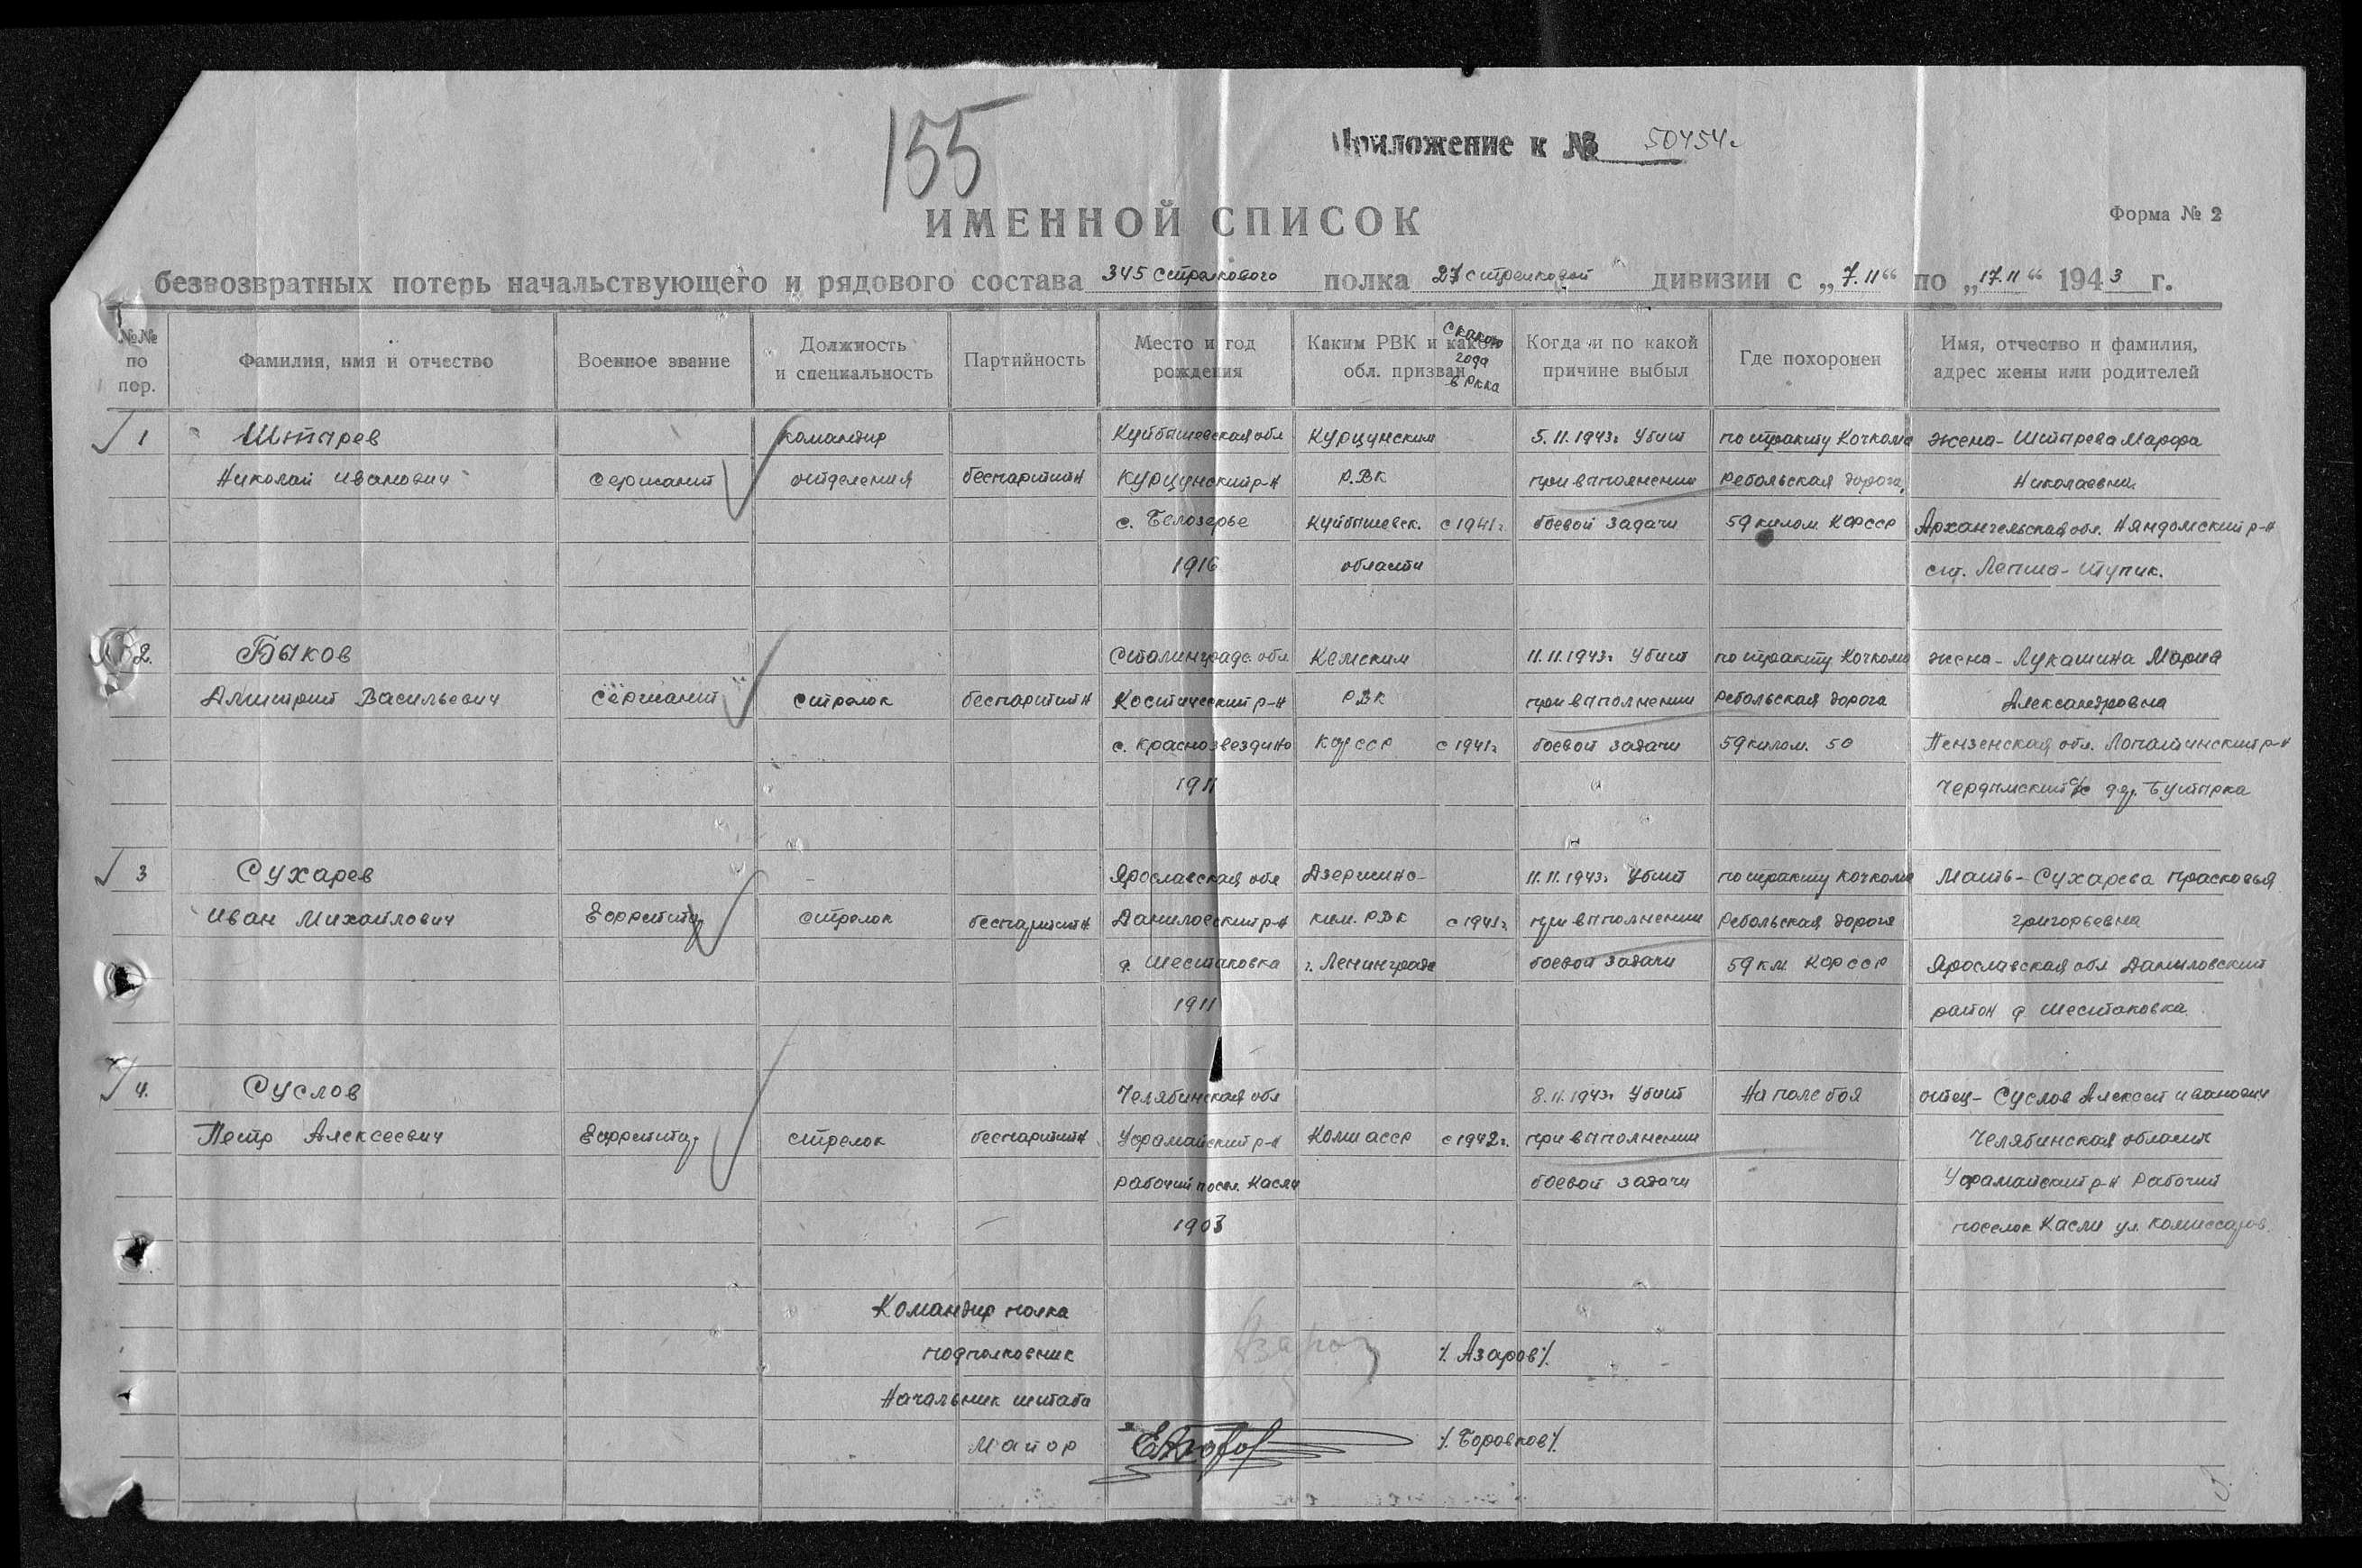 155
Приложение к № 50454с
ИМЕННОЙ СПИСОК
Форма № 2
безвозвратных потерь начальствующего и рядового состава 345 стрелкового полка 27 стрелковой дивизии с „7.11“ по „17.11“ 1943 г.
№№ по пор.
Фамилия, имя и отчество
Военное звание
Должность и специальность
Партийность
Место и год рождения
Каким РВК и какой обл. призван
С какого года в РККА
Когда и по какой причине выбыл
Где похоронен
Имя, отчество и фамилия, адрес жены или родителей
1 Штырев командир Куйбышевская обл Курцунским 5.11.1943г Убит по тракту Кочкома жена - Штырева Марфа
Николай Иванович Сержант отделения беспартийн Курцунский р-н РВК при выполнении Ребольская дорога, Николаевна
с. Белозерье Куйбышевск. с 1941г. боевой задачи 59 килом. КФССР Архангельская обл. Няндомский р-н
1916 области ст. Лепша-Тупик.
2. Быков Сталинградс. обл Кемским 11.11.1943г Убит по тракту Кочкома жена - Лукашина Мария
Дмитрий Васильевич Сержант стрелок беспартийн р-н РВК при выполнении Ребольская дорога Александровна
с. Краснозвездино КФССР с 1941г боевой задачи 59 килом. 50 Пензенская обл. Лопатинский р-н
1911 Чердымский с/с дер. Бутырка
3 Сухарев Ярославская обл Дзержинс- 11.11.1943г Убит по тракту Кочкома Мать - Сухарева Прасковья
Иван Михайлович Ефрейтор стрелок беспартийн Даниловский р-н ким. РВК с 1941г. при выполнении Ребольская дорога Григорьевна
д. Шестаковка г. Ленинграда боевой задачи 59 км КФССР Ярославская обл Даниловский
1911 район д Шестаковка.
4. Суслов Челябинская обл 8.11.1943г Убит На поле боя отец - Суслов Алексей Иванович
Петр Алексеевич Ефрейтор стрелок беспартийн Уфалейский р-н Коми АССР с 1942г. при выполнении Челябинская область
Рабочий посел. Касли боевой задачи Уфалейский р-н Рабочий
1903 поселок Касли ул. Комиссаров.
Командир полка
подполковник Азаров /. Азаров/.
Начальник штаба
Майор /. Боровков/.